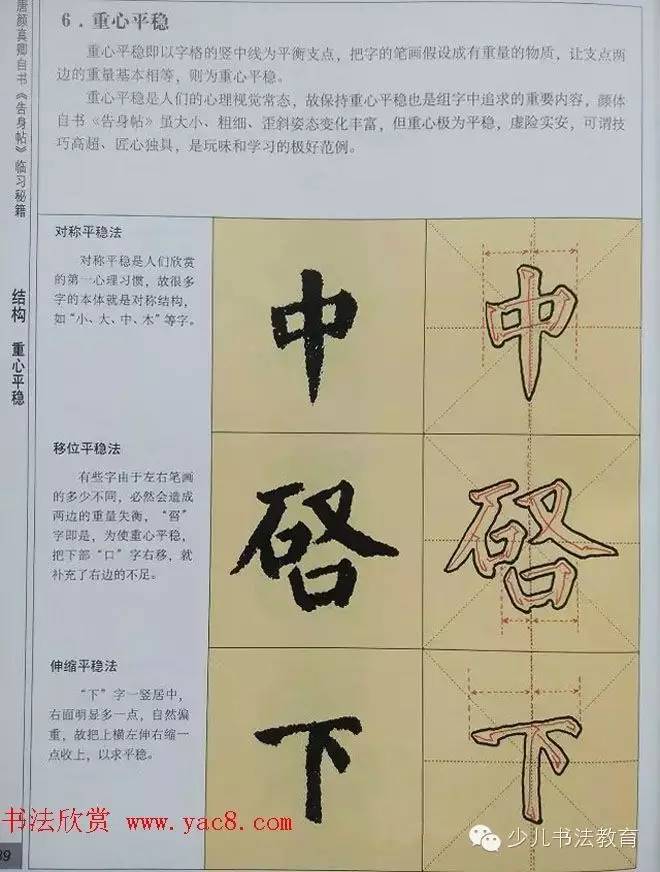 唐颜真卿自书《告身帖》临习秘籍
结构 重心平稳
6．重心平稳
重心平稳即以字格的竖中线为平衡支点，把字的笔画假设成有重量的物质，让支点两
边的重量基本相等，则为重心平稳。
重心平稳是人们的心理视觉常态，故保持重心平稳也是组字中追求的重要内容，颜体
自书《告身帖》虽大小、粗细、歪斜姿态变化丰富，但重心极为平稳，虚险实安，可谓技
巧高超、匠心独具，是玩味和学习的极好范例。
对称平稳法
对称平稳是人们欣赏
的第一心理习惯，故很多
字的本体就是对称结构，
如“小、大、中、木”等字。
中
中
移位平稳法
有些字由于左右笔画
的多少不同，必然会造成
两边的重量失衡，
字即是，为使重心平稳，
把下部“口”字右移，就
补充了右边的不足。
伸缩平稳法
“下”字一竖居中，
右面明显多一点，自然偏
重，故把上横左伸右缩一
点收上，以求平稳。
下
下
书法欣赏 www.yac8.com
少儿书法教育
39